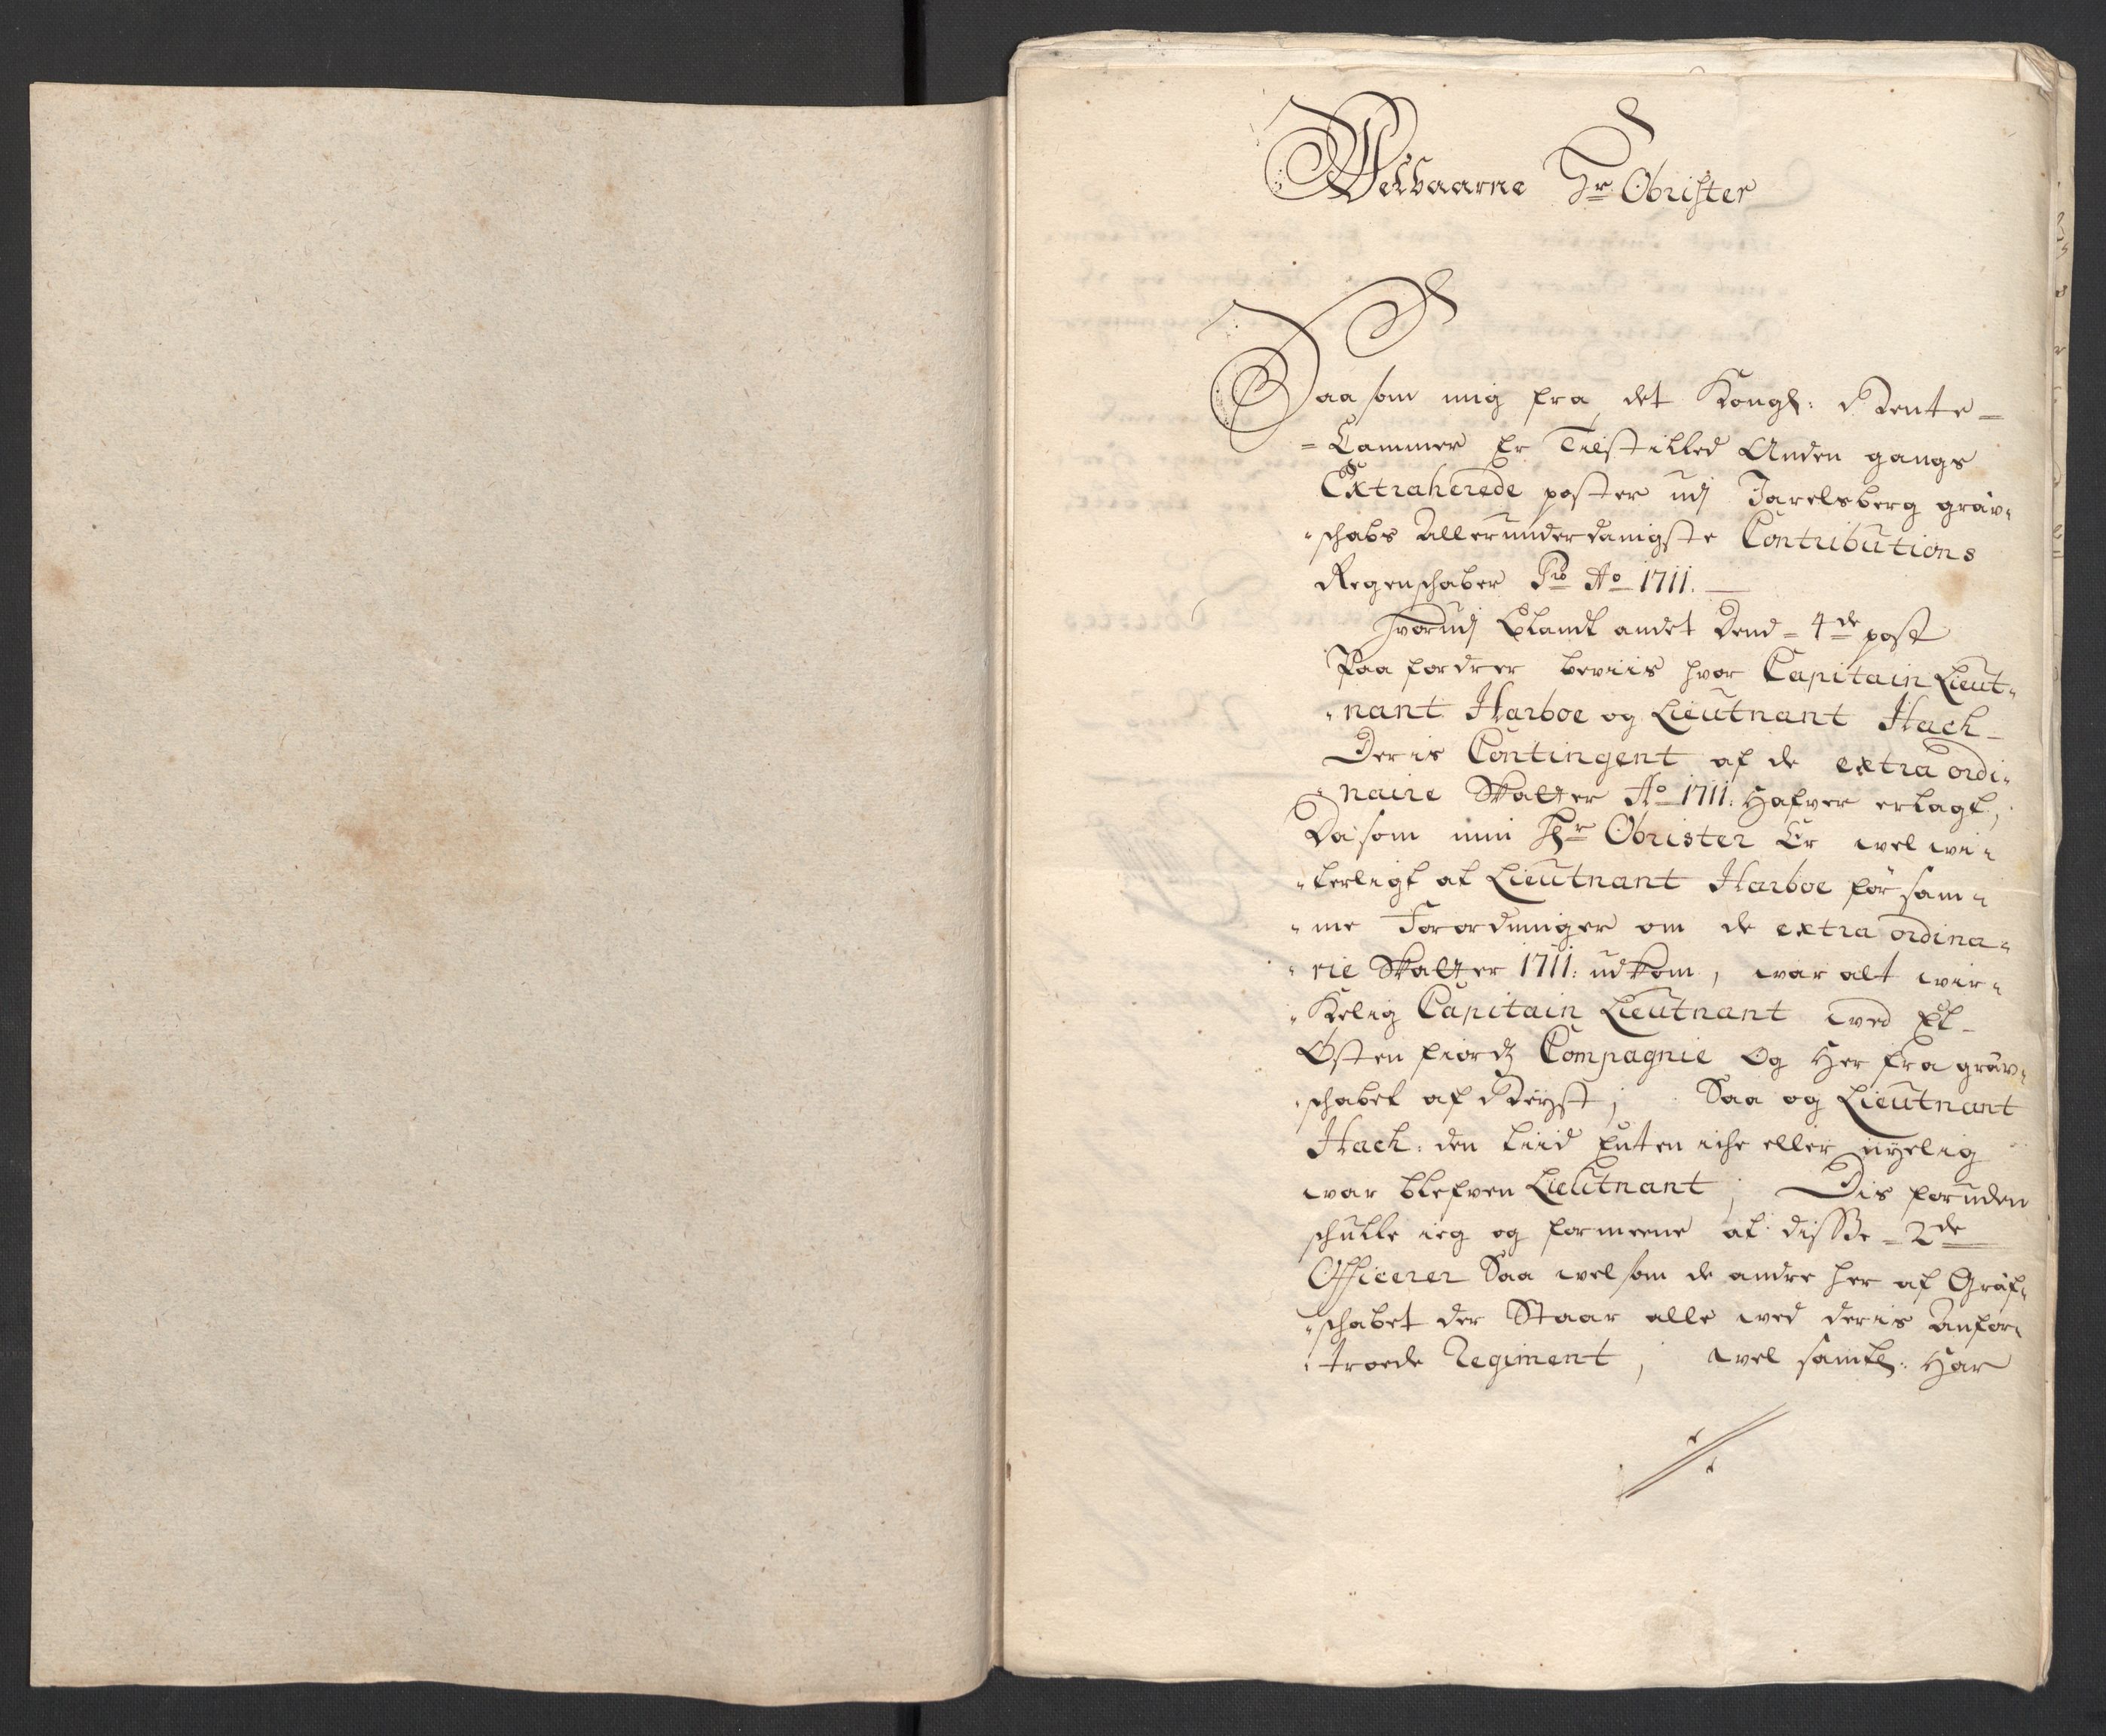 Velbaarne Hr Obrister
Saasom mig fra det Kongl: Rente=
=Cammer Er Tilstilled Anden gangs
Extraherede poster udj Jarelsberg gräv=
=schabs Allerunderdanigste Contributions
Regenschaber Pro Ao 1711.
Hvorudj Blandt andet Dend = 4de post
Paa fordrer beviis hvor Capitain Lieut=
=nant Harboe og Lieutnant Hach
Deris Contingent af de extra ordi=
=naire Skatter Ao 1711: Hafver erlagt,
Da som min Hr Obrister Er vel vi=
=terligt at Lieutnant Harboe för sam=
=me Forordninger om de extra ordina=
=rie Skatter 1711: udkom, var alt vir=
=Kelig Capitain Lieutnant ved Et
Østenfiordz Compagnie Og Her fra gräv=
=schabet af Reÿst; Saa og Lieutnant
Hach: den tiid Enten iche eller nyelig
var blefven Lieutnant; Dis foruden
schulle ieg og formeene at disse = 2de
Officerer Saa vel som de andre her af Gräf=
=schabet der Staar alle ved deris Anfor=
=troede Regiment, vel samtl: Har